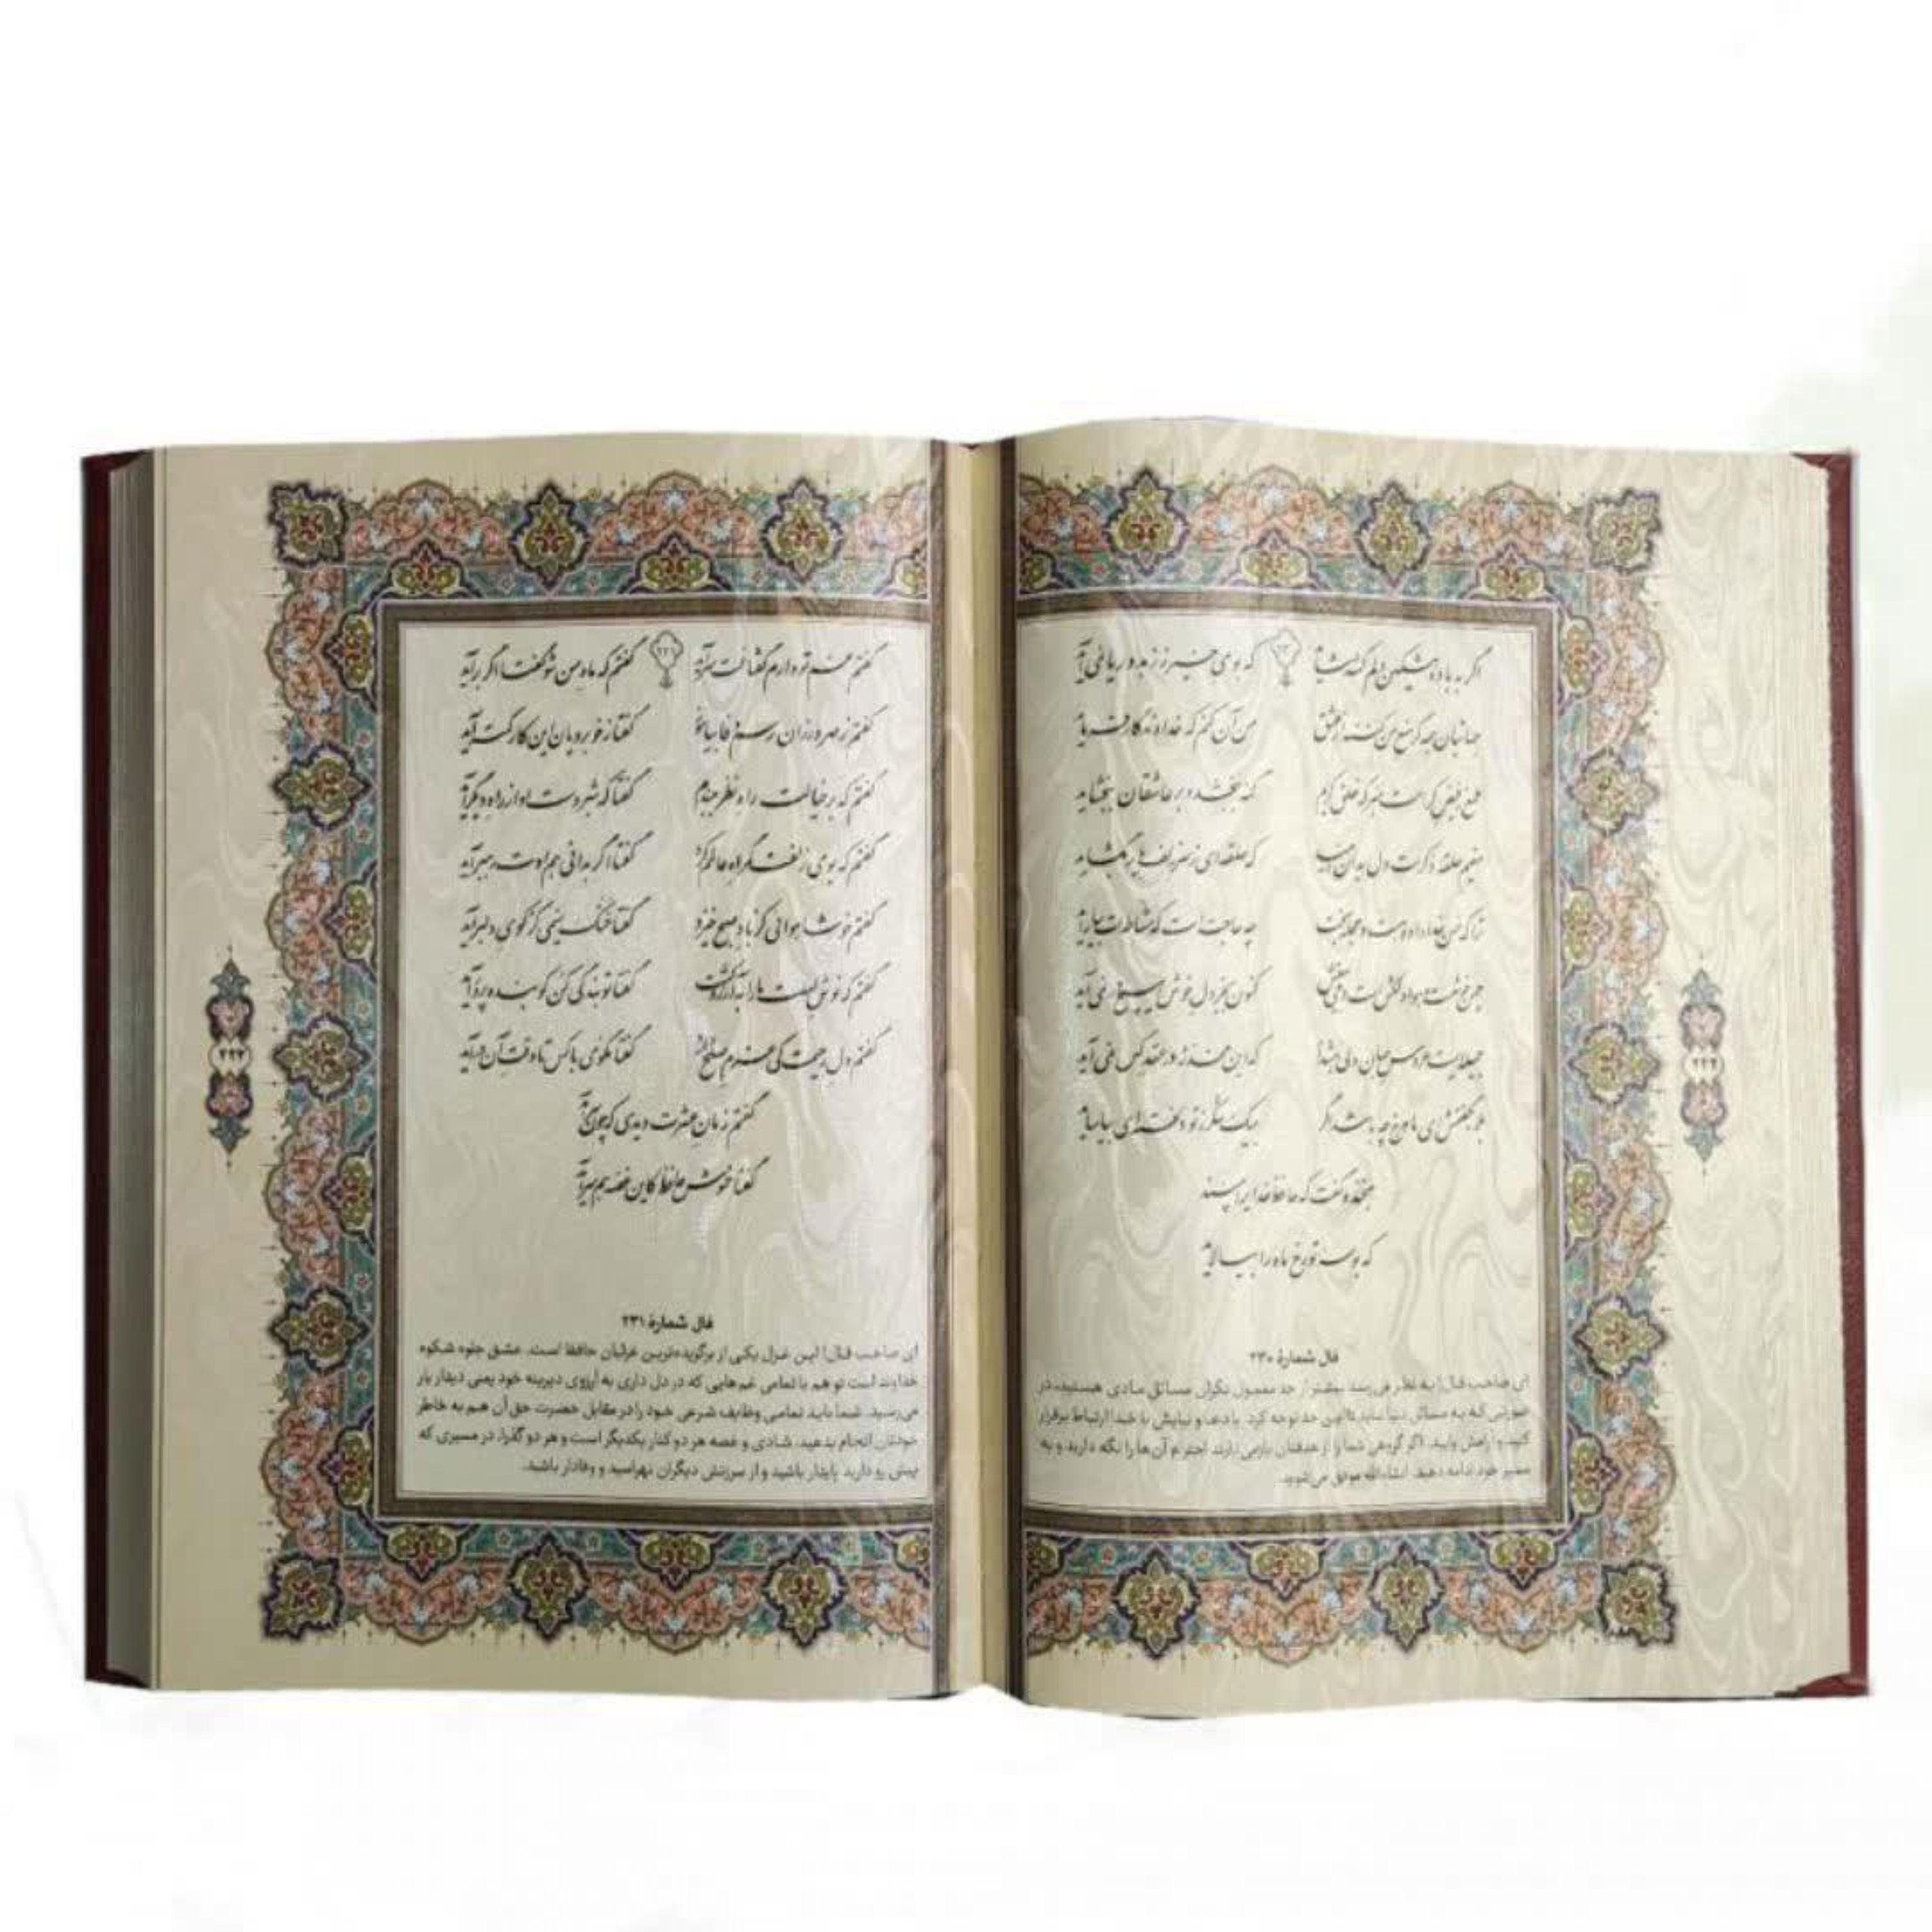 اگر به باده مشکین دلم کشد شاید
که بوی خیر ز زهد و ریا نمی‌آید
جهانیان همه گر منع من کنند از عشق
من آن کنم که خداوندگار فرماید
طمع ز فیض کرامت مبر که خلق کریم
گنه ببخشد و بر عاشقان ببخشاید
مقیم حلقه ذکر است دل بدان امید
که حلقه‌ای ز سر زلف یار بگشاید
ترا که حسن خداداده هست و حجله بخت
چه حاجت است که مشاطه‌ات بیاراید
چمن خوش است و هوا دلکش است و می بیغش
کنون بجز دل خوش هیچ در نمی‌آید
جمیله‌ایست عروس جهان ولی هشدار
که این مخدره در عقد کس نمی‌آید
به لابه گفتمش ای ماهرخ چه باشد اگر
به یک شکر ز تو دلخسته‌ای بیاساید
بخنده گفت که حافظ خدایرا مپسند
که بوسه تو رخ ماه را بیالاید
فال شمارهٔ ۲۳۰
ای صاحب فال! به نظر می‌رسد بیشتر از حد معمول نگران مسائل مادی هستید، در
صورتی که به مسائل دنیا نباید تا این حد توجه کرد. با دعا و نیایش با خدا ارتباط برقرار
کنید و آرامش یابید. اگر گروهی شما را از هدفتان بازمی دارند احترام آن‌ها را نگه دارید و به
مسیر خود ادامه دهید. انشاءالله موفق می‌شوید.
۲۳۱
گفتم غم تو دارم گفتا غمت سر آید
گفتم که ماه من شو گفتا اگر برآید
گفتم ز مهرورزان رسم وفا بیاموز
گفتا ز خوبرویان این کار کمتر آید
گفتم که بر خیالت راه نظر ببندم
گفتا که شبروست او از راه دیگر آید
گفتم که بوی زلفت گمراه عالمم کرد
گفتا اگر بدانی هم اوت رهبر آید
گفتم خوشا هوائی کز باد صبح خیزد
گفتا خنک نسیمی کز کوی دلبر آید
گفتم که نوش لعلت ما را به آرزو کشت
گفتا تو بندگی کن کو بنده پرور آید
گفتم دل رحیمت کی عزم صلح دارد
گفتا مگوی با کس تا وقت آن درآید
گفتم زمان عشرت دیدی که چون سر آمد
گفتا خموش حافظ کاین غصه هم سر آید
فال شمارهٔ ۲۳۱
ای صاحب فال! این غزل یکی از برگزیده‌ترین غزلیات حافظ است. عشق جلوه شکوه
خداوند است تو هم با تمامی غم هایی که در دل داری به آرزوی دیرینه خود یعنی دیدار یار
می‌رسید. شما باید تمامی وظایف شرعی خود را در مقابل حضرت حق آن هم به خاطر
خودتان انجام بدهید. شادی و غصه هر دو کنار یکدیگر است و هر دو گذرا. در مسیری که
پیش رو دارید پایدار باشید و از سرزنش دیگران نهراسید و وفادار باشید.